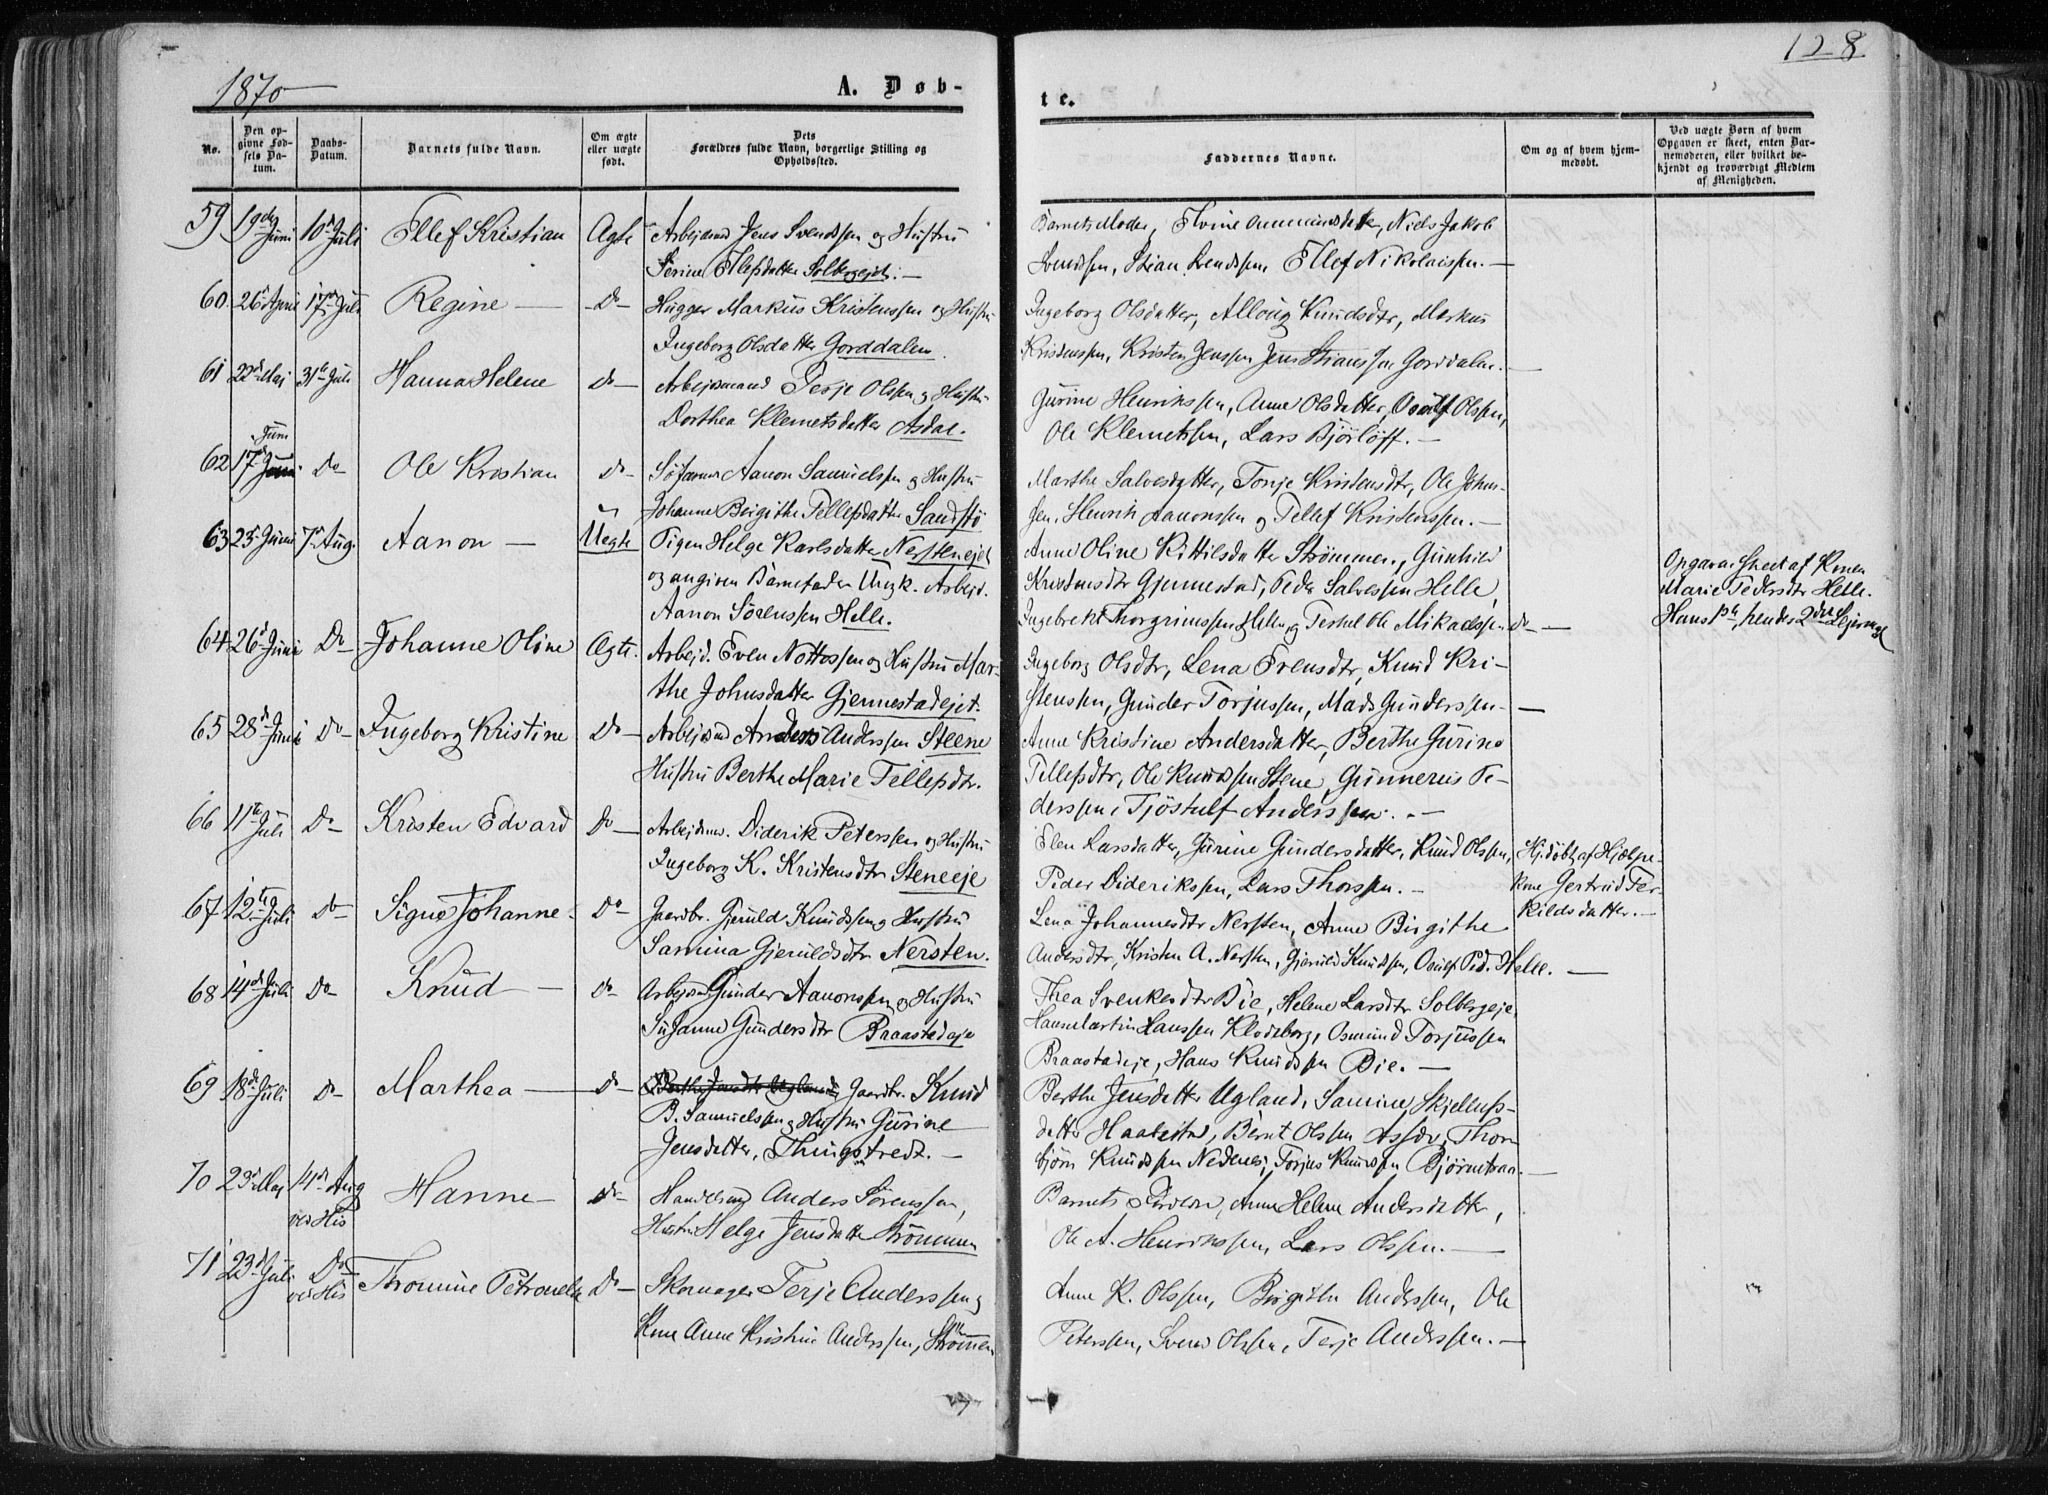 128
1870
A. Døb-
te.
No.
Den op-
givne Fød-
sels Da-
tum.
Daabs-
Datum.
Barnets fulde Navn.
Om ægte
eller uægte
født.
Dets
Forældres fulde Navn, borgerlige Stilling og
Opholdssted.
Faddernes Navne.
Om og af hvem hjem-
medøbt.
Ved uægte Børn af hvem
Opgaven er skeet, enten Bar-
nemoderen, eller hvilket be-
kjendt og troværdigt Medlem
af Menigheden.
59 19de Juni 10de Juli Ellef Kristian Ægte Arbejdsmd Jens Svendssen og Hustru
Serine Ellefsdatter Solbergejet. —
Barnets Moder, Elvine Ammundsdatter, Niels Jakob
Svendssen, Stian Svendssen, Ellef Nikolaissen. —
60. 26de April 17de Juli Regine — Do — Hugger Markus Kristenssen og Hustru
Ingeborg Olsdatter Gorddalen.
Ingeborg Olsdatter, Alloug Knudsdtr, Markus
Kristenssen, Kristen Jenssen Jens Stianssen Gorddalen. —
61 22de Maj 31te Juli Hanna Helene Do — Arbejdsmand Terje Olssen og Hustru
Dorthea Klemetsdatter Asdal.
Gurine Henrikssen, Anne Olsdatter, Osulf Olssen,
Ole Klemetssen, Lars Bjorløff. —
62 17de Juni Do Ole Kristian Do Søfarer Aanon Samuelssen og Hustru
Johanne Birgithe Tellefsdatter Sandstø
Marthe Salvesdatter, Tonje Kristensdtr, Ole Johns-
sen, Henrik Aanonssen og Tellef Kristenssen. —
63 23de Juni 7de Aug. Aanon — Uægte Pigen Helge Karlsdatter Nerstenejet
og angiven Barnefader Ungk. Arbejd.
Aanon Sørenssen Helle.
Anne Oline Kittilsdatter Strømmen, Gunhild
Kristensdtr Gjennestad, Peder Salvessen Helle,
Ingebrekt Thorgrimssen Helle, og Terkel Ole Mikaelssen Do —
Opgave skeet af Konen
Marie Pedersdtr Helle.
Hans 1ste, hendes 2det Lejermaal
64 26de Juni Do Johanne Oline Ægte. Arbejd. Even Nottossen og Hustru Mar-
the Johnsdatter Gjennestadejet.
Ingeborg Olsdtr, Lena Evensdtr, Knud Kri-
stenssen, Gunder Torjussen, Mads Gunderssen —
65 28de Juni Do — Ingeborg Kristine Do — Arbejdsmd Anders Anderssen Steene
Hustru Berthe Marie Tellefsdtr.
Anne Kristine Andersdatter, Berthe Gurine
Tellefsdtr, Ole Knudssen Stene, Gunnerius Pe-
derssen, Tjøstulf Anderssen. —
66 11te Juli Do — Kristen Edvard Do — Arbejdsm. Diderik Peterssen og Hustru
Ingeborg K. Kristensdtr Steneeje
Elen Larsdatter, Gurine Gundersdatter, Knud Olssen,
Peder Dideriksen, Lars Thorssen. —
Hj.døbt af Hjælpe-
kone Gertrud Ter-
kildsdatter. —
67 12te Juli Do — Signe Johanne Do — Gaardbr. Gjeruld Knudssen og Hustru
Samina Gjeruldsdtr Nersten.
Lena Johannesdtr Nersten, Anne Birgithe
Andersdtr, Kristen A. Nersten, Gjeruld Knudssen, Osulf Ped. Helle. —
68 14de Juli Do — Knud — Do — Arbejdsmd Gunder Aanonssen og Hustru
Susanne Gundersdtr Braastadeje
Thea Svenkesdtr Bie, Helene Larsdtr Solbergeje,
Hans Martin Hanssen Klodeborg, Osmund Torjussen
Braastadeje, Hans Knudssen Bie. —
69 18de Juli Do — Marthea — Do — Berthe Jensdtr Ugland Gaardbr. Knud
B. Samuelssen og Hustru Gurine
Jensdatter, Thingstvedt. —
Berthe Jensdatter Ugland, Samine Skjellufs-
datter Haabestad, Bernt Olssen Assev, Thor
bjørn Knudssen Nedenes, Torjus Knudssen Bjørnetraa. —
70 23de Maj 14de Aug ved His Hanne — Do — Handelsmd Anders Sørenssen,
Hustru Helge Jensdatter Strømmen
Barnets Forældre, Anne Helene Andersdatter,
Ole A. Henrikssen, Lars Olssen. —
71 23de Juli Do ved His Thomine Petronelle Do — Skomager Terje Anderssen og
Kone Anne Kristine Anderssen, Strømmen
Anne K. Olssen, Birgithe Anderssen, Ole
Peterssen, Svend Olssen, Terje Anderssen. —